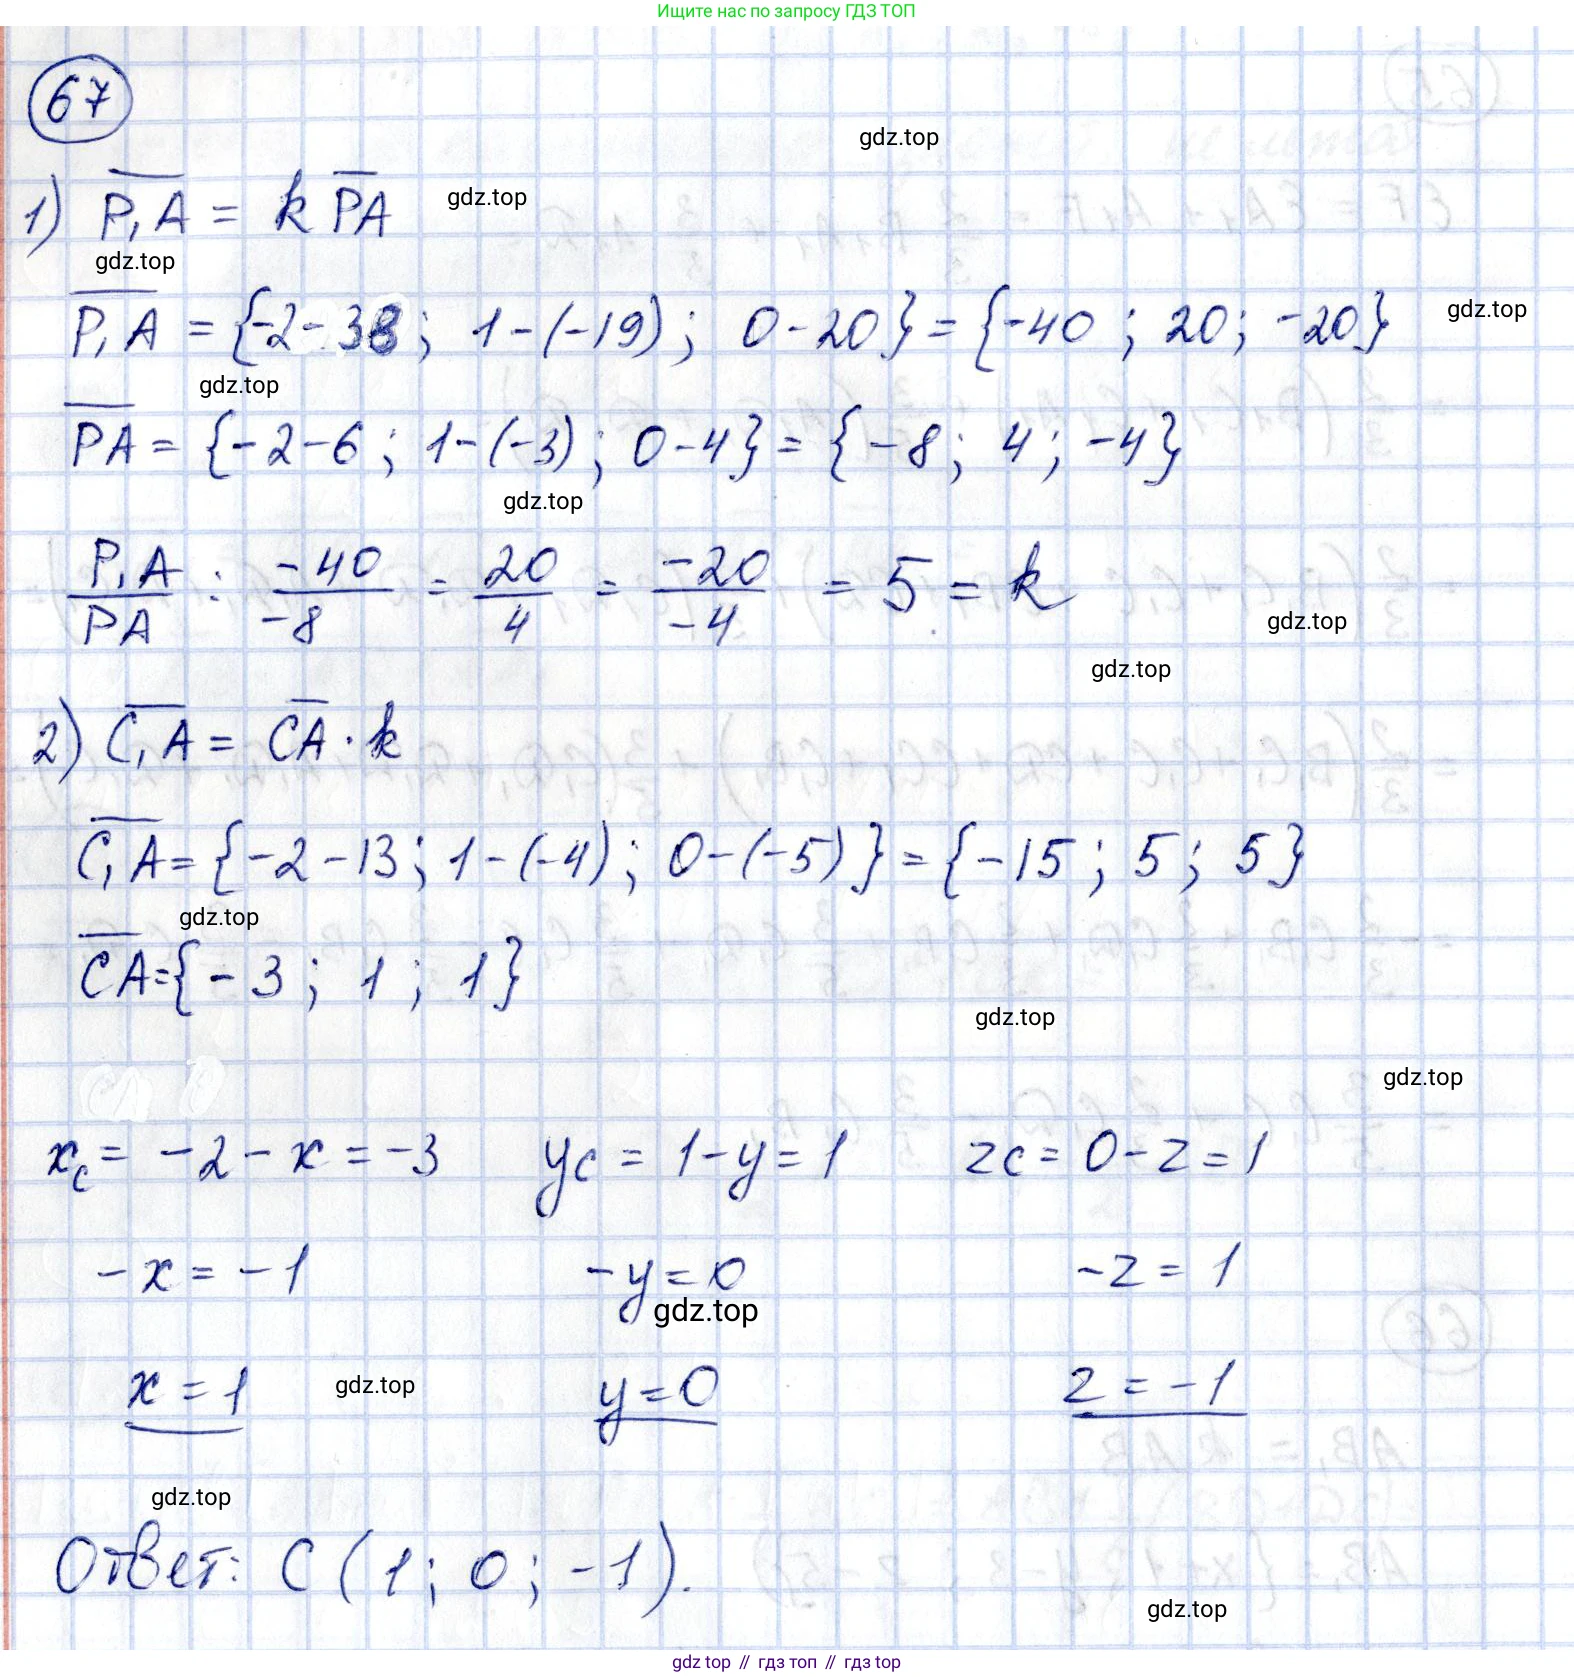 Ищите нас по запросу ГДЗ ТОП
67
gdz.top
1) P₁A = k PA
gdz.top
gdz.top
P₁A = {-2-38; 1-(-19); 0-20} = {-40; 20; -20}
gdz.top
gdz.top
PA = {-2-6; 1-(-3); 0-4} = {-8; 4; -4}
gdz.top
P₁A/PA : -40/-8 = 20/4 = -20/-4 = 5 = k
gdz.top
gdz.top
2) C₁A = CA · k
C₁A = {-2-13; 1-(-4); 0-(-5)} = {-15; 5; 5}
gdz.top
CA = {-3; 1; 1}
gdz.top
gdz.top
x_c = -2-x = -3 yc = 1-y = 1 zc = 0-z = 1
-x = -1 -y = 0 -z = 1
gdz.top
x = 1 gdz.top y = 0 z = -1
gdz.top
Ответ: C (1; 0; -1).
gdz.top
gdz top // гдз топ // гдз top